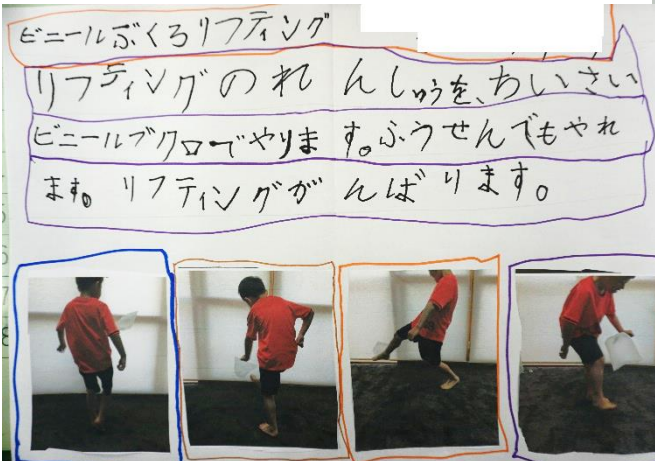 ビニールぶくろリフティング
リフティングのれんしゅうを、ちいさい
ビニールブクロでやります。ふうせんでもやれ
ます。リフティングがんばります。